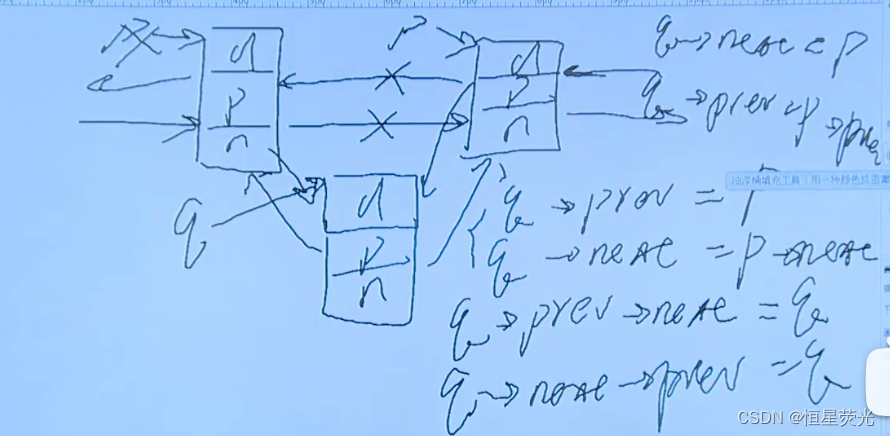 p
d
p
n
p
d
p
n
q
d
p
n
q→next = p
q→prev = p→prev
油漆桶填充工具 | 用一种颜色绘图案
q→prev = p
q→next = p→next
q→prev→next = q
q→next→prev = q
CSDN @恒星荧光